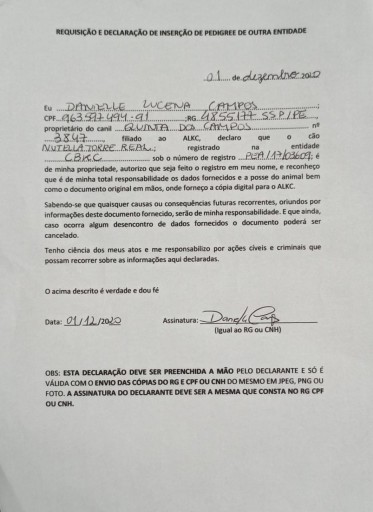 REQUISIÇÃO E DECLARAÇÃO DE INSERÇÃO DE PEDIGREE DE OUTRA ENTIDADE
01 de dezembro 2020
Eu DANIELLE LUCENA CAMPOS;
CPF 963597494-91 ;RG 4855177 SSP/PE
proprietário do canil QUINTA DOS CAMPOS nº
3847 filiado ao ALKC, declaro que o cão
NUTELLA TORRE REAL; registrado na entidade
CBKC sob o número de registro PEA/17/03609; é
de minha propriedade, autorizo que seja feito o registro em meu nome, e reconheço
que é de minha total responsabilidade os dados fornecidos e a posse do animal bem
como o documento original em mãos, onde forneço a cópia digital para o ALKC.
Sabendo-se que quaisquer causas ou consequências futuras recorrentes, oriundos por
informações deste documento fornecido, serão de minha responsabilidade. E que ainda,
caso ocorra algum desencontro de dados fornecidos o documento poderá ser
cancelado.
Tenho ciência dos meus atos e me responsabilizo por ações cíveis e criminais que
possam recorrer sobre as informações aqui declaradas.
O acima descrito é verdade e dou fé
Data: 01/12/2020 Assinatura:
(Igual ao RG ou CNH)
OBS: ESTA DECLARAÇÃO DEVE SER PREENCHIDA A MÃO PELO DECLARANTE E SÓ É
VÁLIDA COM O ENVIO DAS CÓPIAS DO RG E CPF OU CNH DO MESMO EM JPEG, PNG OU
FOTO. A ASSINATURA DO DECLARANTE DEVE SER A MESMA QUE CONSTA NO RG CPF
OU CNH.